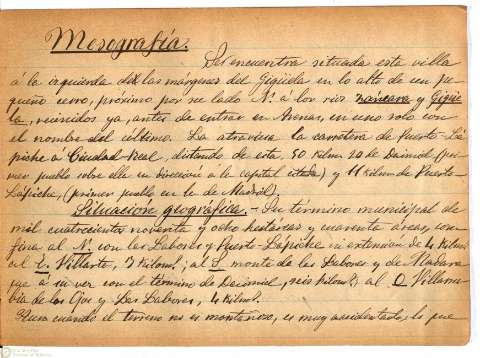 Mesografía.
Se encuentra situada esta villa
á la izquierda de las márgenes del Gigüela en lo alto de un pe
queño cerro, próximo por su lado N. á los ríos Záncara y Gigüe
la, reunidos ya, antes de entrar en Arenas, en uno solo con
el nombre del último. La atraviesa la carretera de Puerto-Lá
piche á Ciudad-Real, distando de esta, 50 kilms. 20 de Daimiel (pri
mer pueblo sobre ella en dirección a la capital citada) y 11 kilms de Puerto-
Lápiche, (primer pueblo en la de Madrid).
Situación geográfica.- Su término municipal de
mil cuatrocientas noventa y ocho hectáreas y cuarenta áreas, con
fina al N. con las Labores y Puerto-Lápiche en extensión de 4 kiloms.
al E. Villarta, 3 kiloms.; al S. monte de las Labores y de
que á su vez con el término de Daimiel, seis kiloms; al O Villarru
bia de los Ojos y Las Labores, 4 kilms.
Aun cuando el terreno no es montañoso, es muy accidentado, lo que